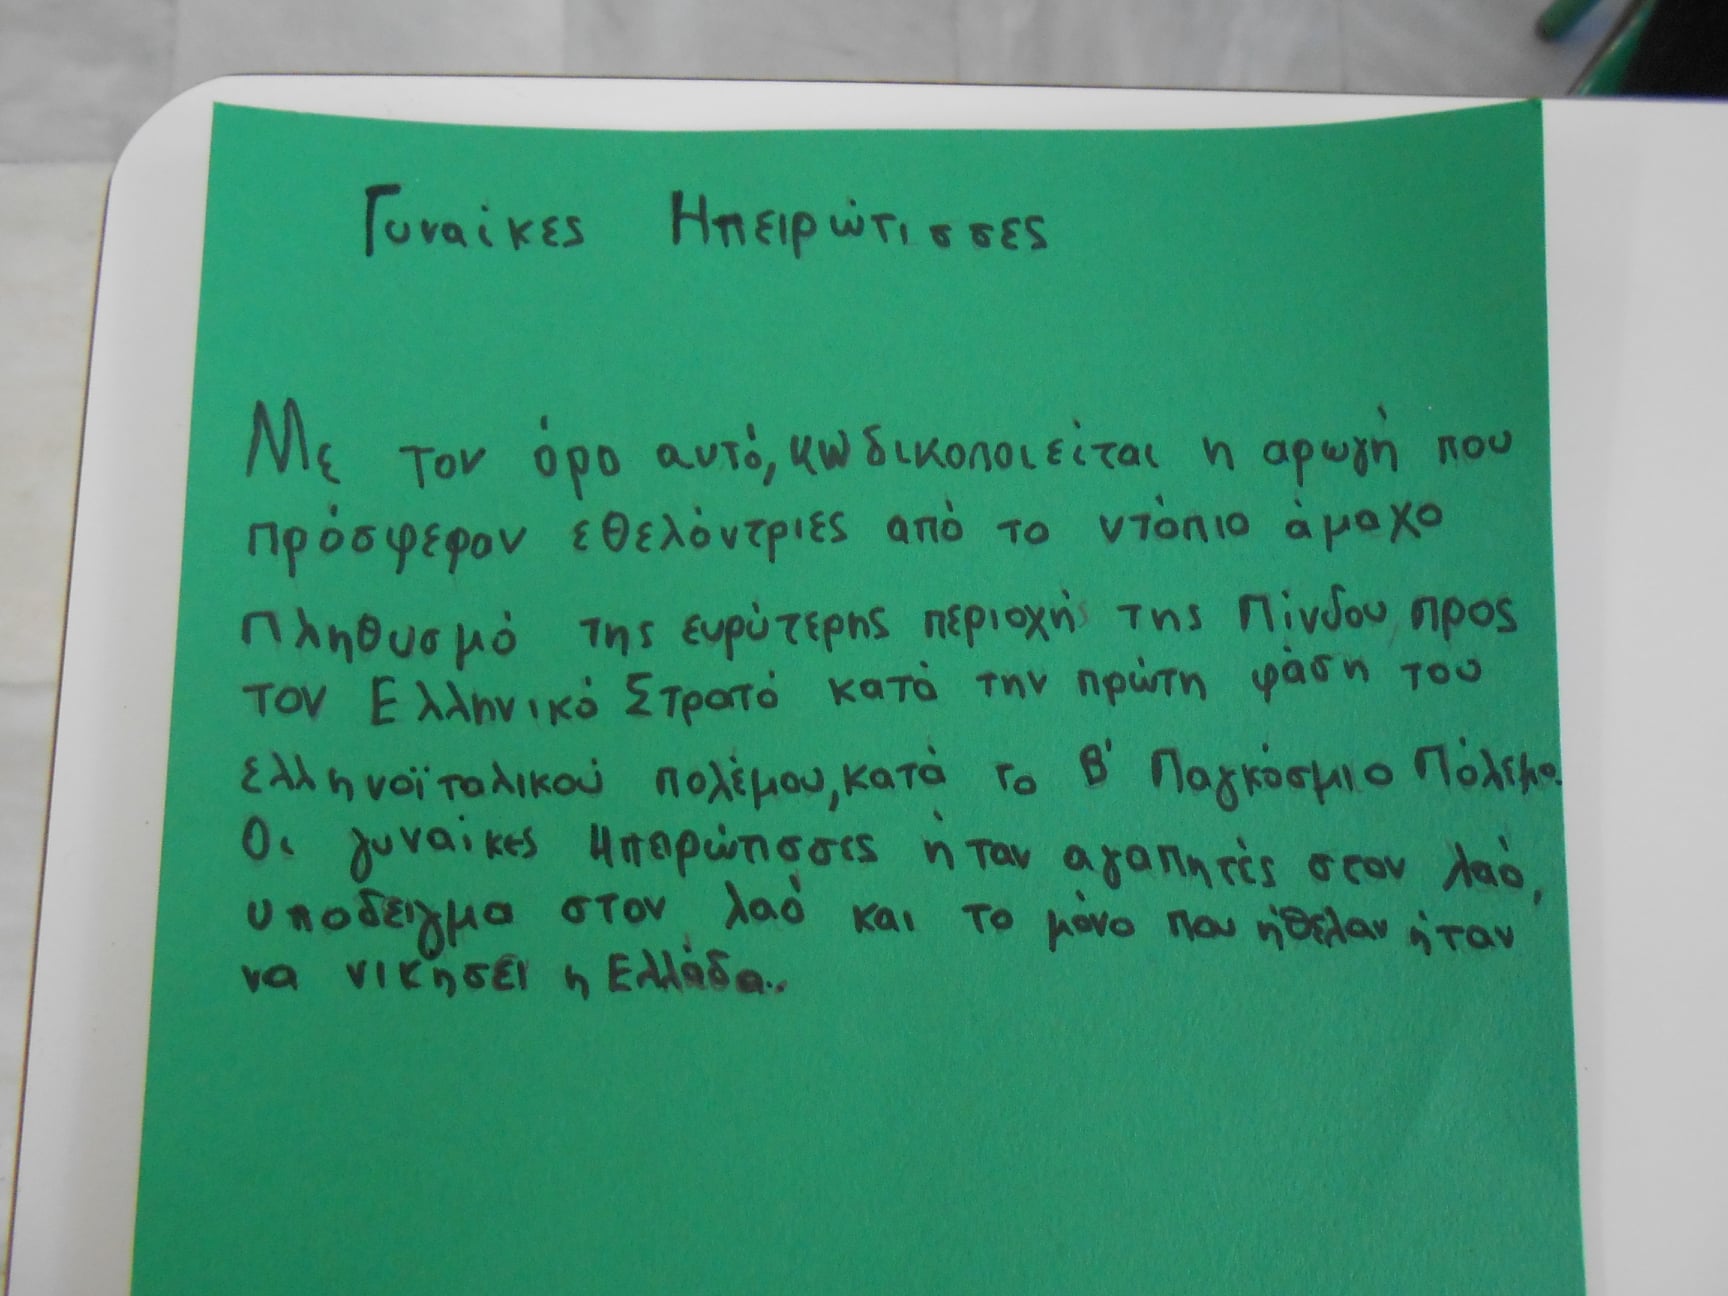 Γυναίκες Ηπειρώτισσες
Με τον όρο αυτό, κωδικοποιείται η αρωγή που
πρόσφεραν εθελόντριες από το ντόπιο άμαχο
πληθυσμό της ευρύτερης περιοχής της Πίνδου προς
τον Ελληνικό Στρατό κατά την πρώτη φάση του
ελληνοϊταλικού πολέμου, κατά το Β' Παγκόσμιο Πόλεμο.
Οι γυναίκες Ηπειρώτισσες ήταν αγαπητές στον λαό,
υπόδειγμα στον λαό και το μόνο που ήθελαν ήταν
να νικήσει η Ελλάδα..